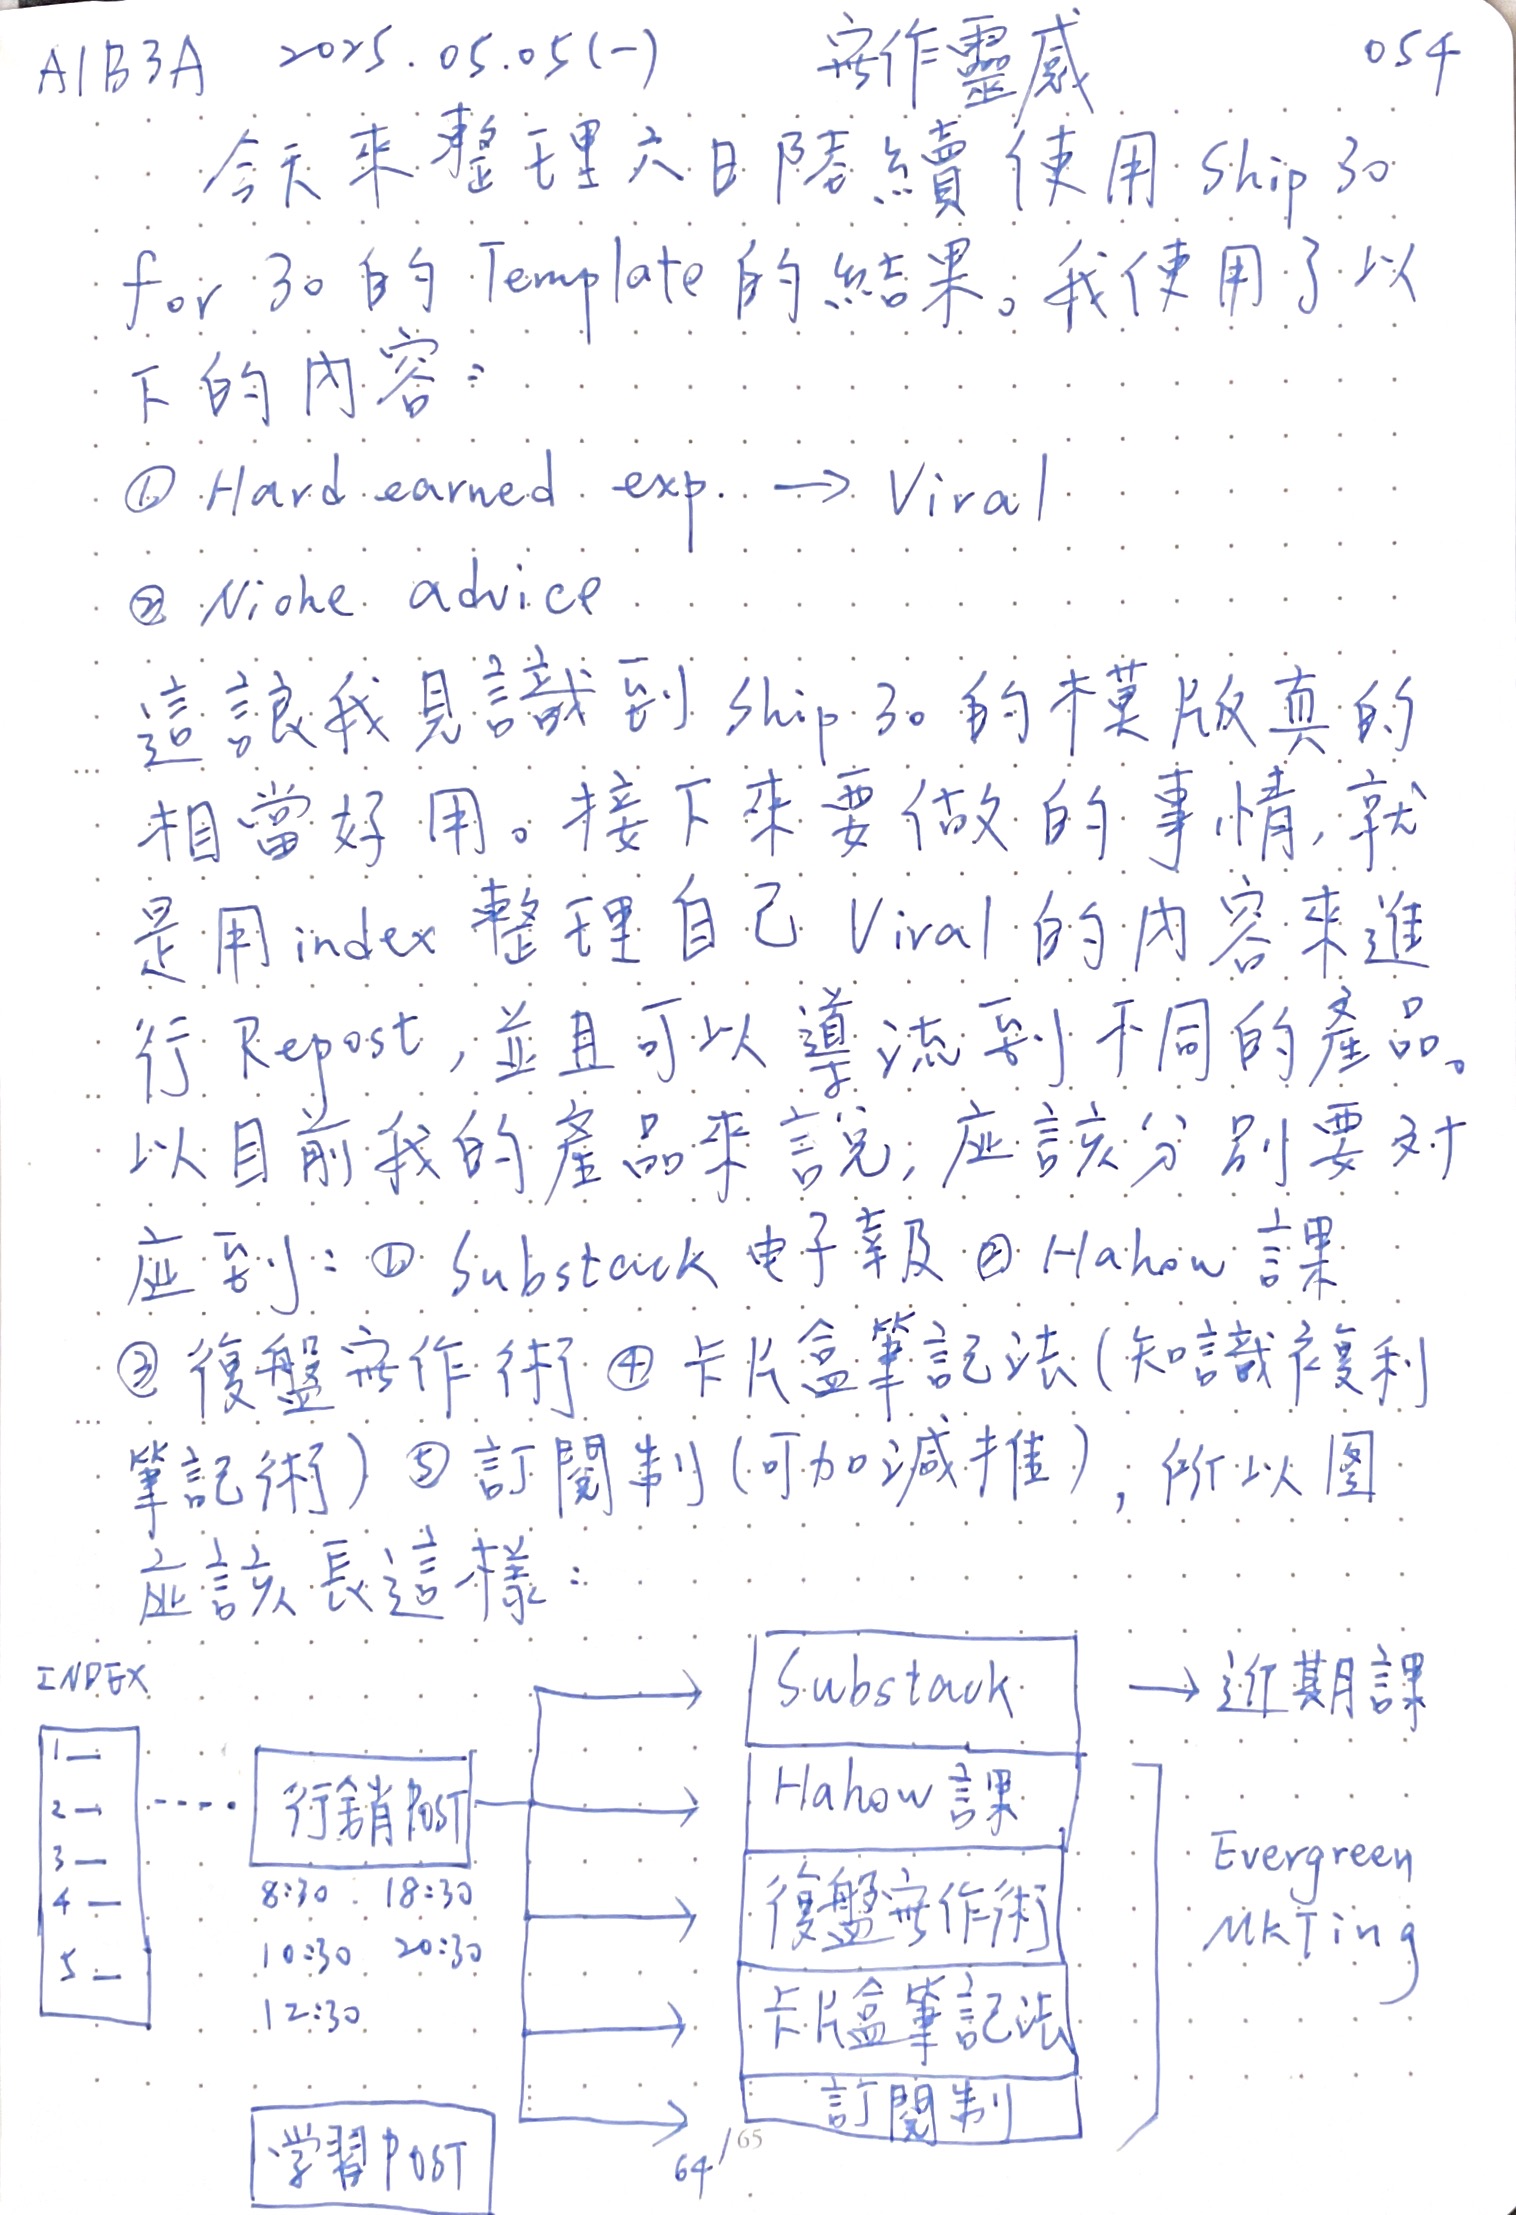 A1B3A 2025.05.05(一) 寫作靈感 054
今天來整理六日陸續使用 Ship 30
for 30 的 Template 的結果。我使用了以
下的內容：
① Hard earned exp. → Viral
② Niche advice
這讓我見識到 Ship 30 的模版真的
相當好用。接下來要做的事情,就
是用 index 整理自己 Viral 的內容來進
行 Repost,並且可以導流到不同的產品。
以目前我的產品來說,应該分別要对
应到：① Substack 电子報 ② Hahow 課
③ 復盤寫作術 ④ 卡片盒筆記法(知識複利
筆記術) ⑤ 訂閱制(可加減推),所以图
应該長這樣：
INDEX
1 —
2 —
3 —
4 —
5 —
行銷POST
8:30 18:30
10:30 20:30
12:30
学習POST
Substack → 近期課
Hahow 課
復盤寫作術
卡片盒筆記法
訂閱制
Evergreen
MKTing
64/65